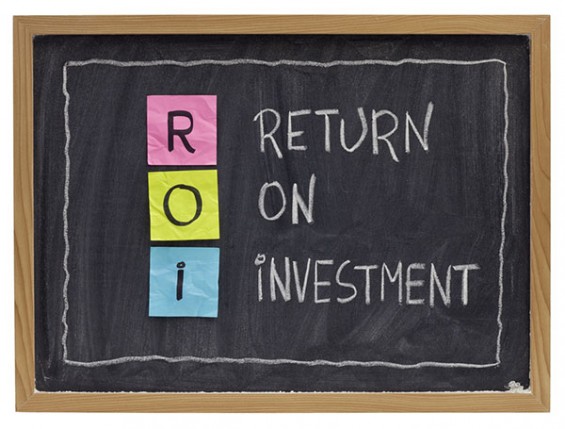 R RETURN
O ON
i iNVESTMENT